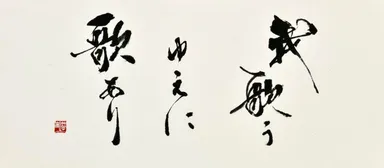 我歌う
ゆえに
歌あり